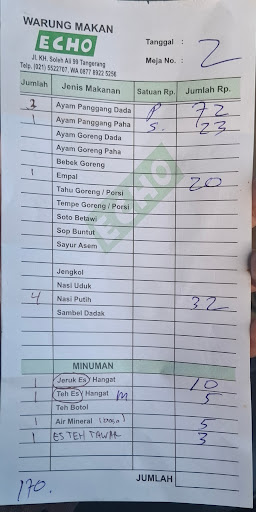 WARUNG MAKAN
ECHO
Jl. KH. Soleh Ali 99 Tangerang
Telp. (021) 5522707, WA 0877 8922 5256
Tanggal :
Meja No. : 2
Jumlah Jenis Makanan Satuan Rp. Jumlah Rp.
Ayam Panggang Dada P 72
1 Ayam Panggang Paha S. 23
Ayam Goreng Dada
Ayam Goreng Paha
Bebek Goreng
1 Empal 20
Tahu Goreng / Porsi
Tempe Goreng / Porsi
Soto Betawi
Sop Buntut
Sayur Asem
Jengkol
Nasi Uduk
4 Nasi Putih 32
Sambel Dadak
ECHO
MINUMAN
1 Jeruk Es / Hangat 10
1 Teh Es / Hangat m 5
Teh Botol
1 Air Mineral 5
1 ES TEH TAWAR 3
JUMLAH
170.